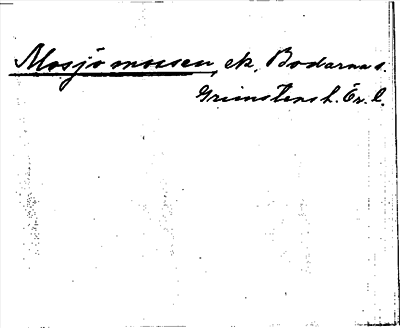 Mosjömossen, ek. Bodarna s.
Grimstens h. Ör. l.